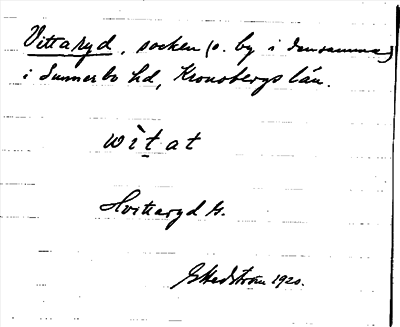 Vittaryd, socken (o. by i densamma)
i Sunnerbo hd, Kronobergs län.
wìtat
Hvittaryd G.
G Hedström 1920.